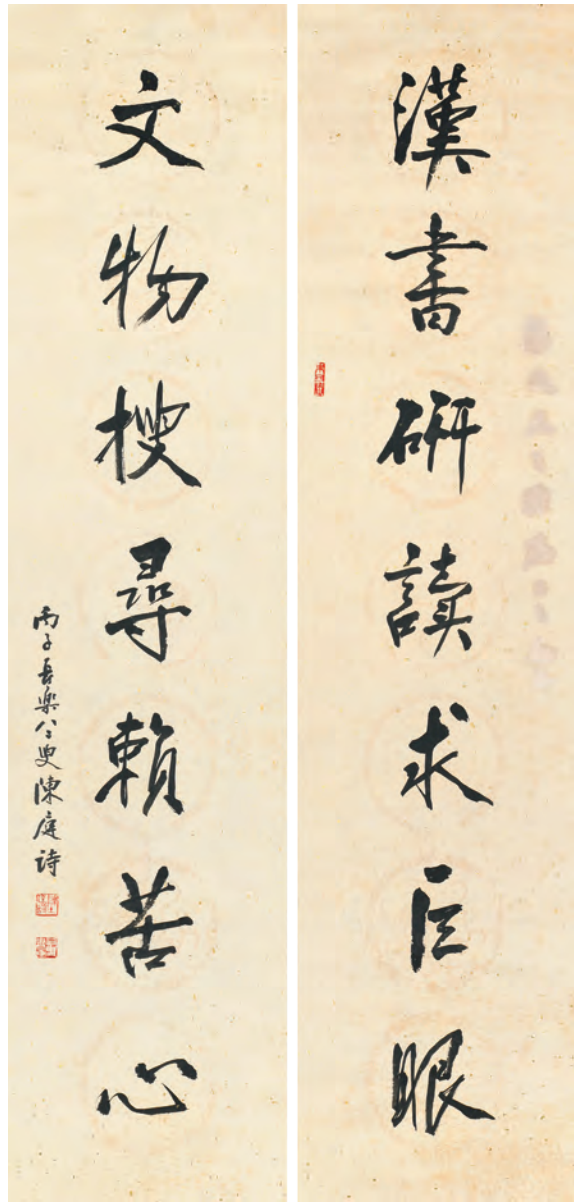 漢書研讀求巨眼
文物搜尋賴苦心
丙子長樂八二叟陳庭詩